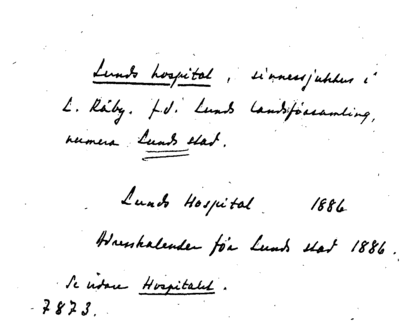 Lunds hospital, sinnessjukhus i
L. Råby. f.d. Lunds landsförsamling,
numera Lunds stad.
Lunds Hospital 1886
Adresskalender för Lunds stad 1886.
Se vidare Hospitalet.
7873.